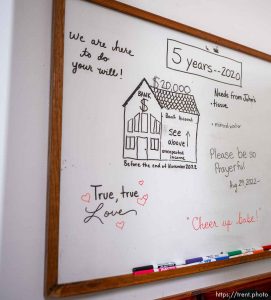 We are here
to do
your will!
5 years--2020
$20,000
BANK
$
Bank Account
SEE
above
unexpected
income
Before the end of November 2022
Needs from John's
Please be so
Prayerful
Aug 29, 2022-
True, true
Love
"Cheer up babe!"
https://trent.photo